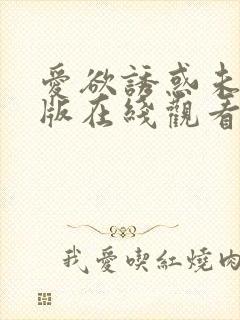 愛欲誘惑未
版在綫觀看
我愛喫紅燒肉